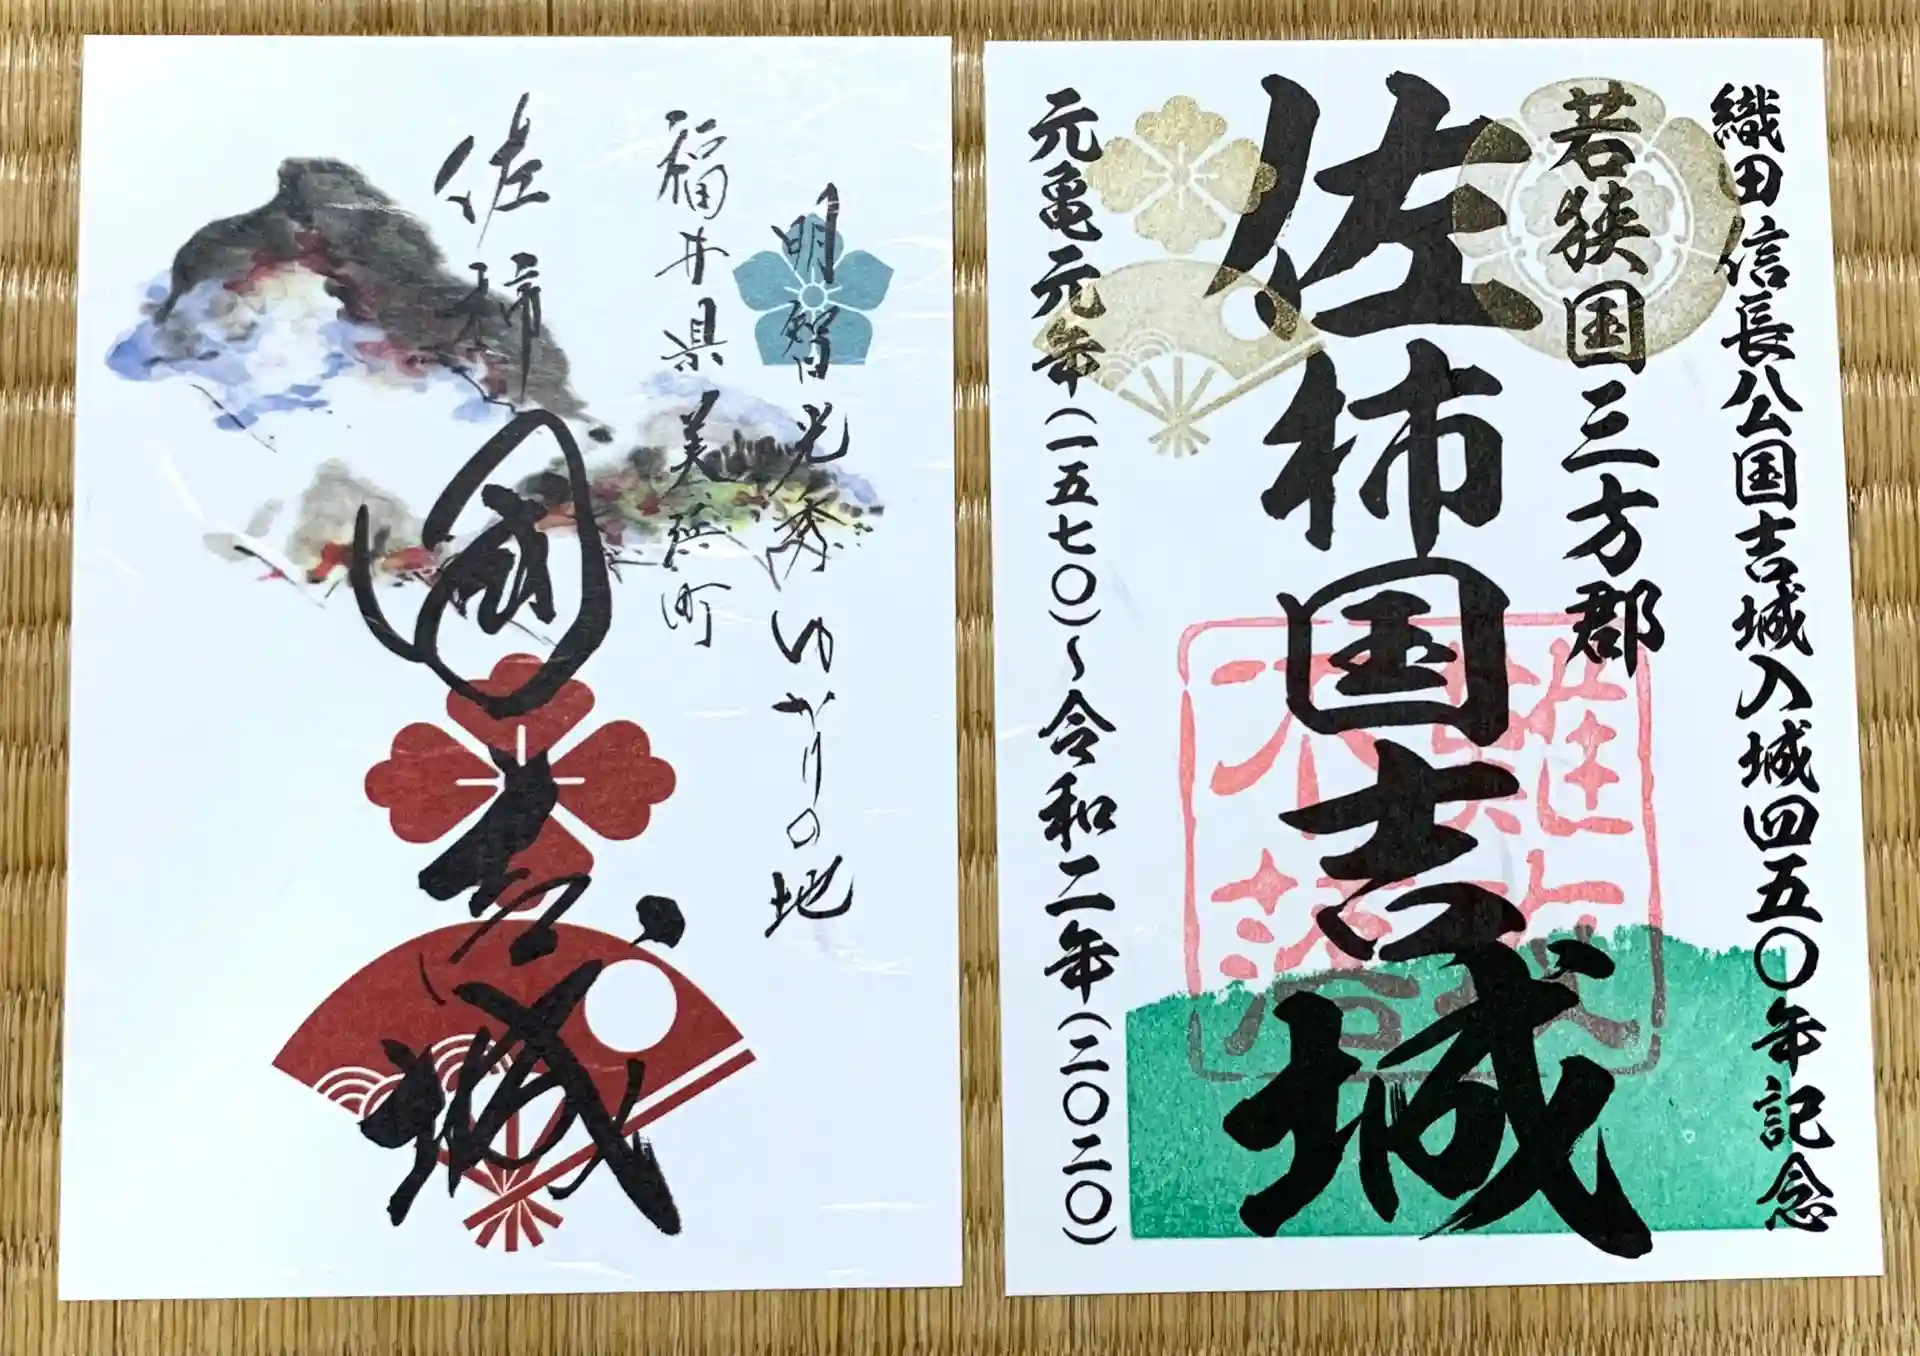 明智光秀ゆかりの地
福井県美浜町
佐柿
國吉城
織田信長公国吉城入城四五〇年記念
若狭国三方郡
佐柿国吉城
難攻不落
元亀元年(一五七〇)～令和二年(二〇二〇)